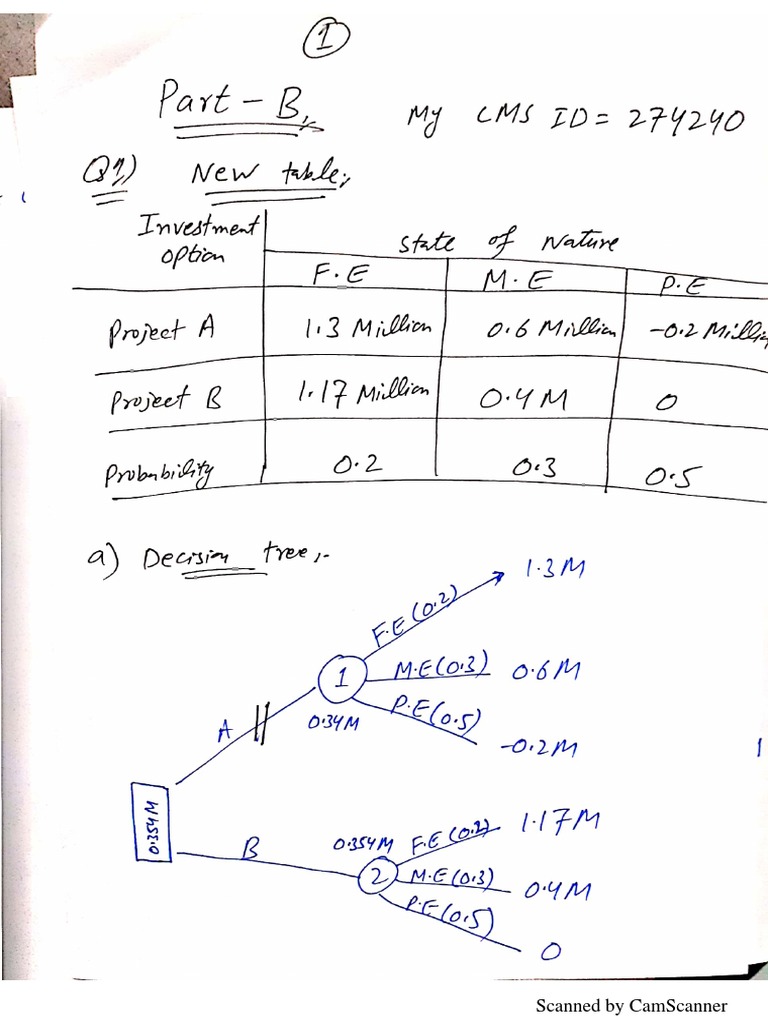 1
Part – B, My CMS ID = 274240
Q1) New table;
Investment option State of Nature
F.E M.E P.E
Project A 1.3 Million 0.6 Million -0.2 Million
Project B 1.17 Million 0.4 M 0
Probability 0.2 0.3 0.5
a) Decision tree,-
F.E (0.2) 1.3 M
1 M.E (0.3) 0.6 M
A 0.34M P.E (0.5) -0.2 M
0.354 M
B 0.354M F.E (0.2) 1.17 M
2 M.E (0.3) 0.4 M
P.E (0.5) 0
Scanned by CamScanner